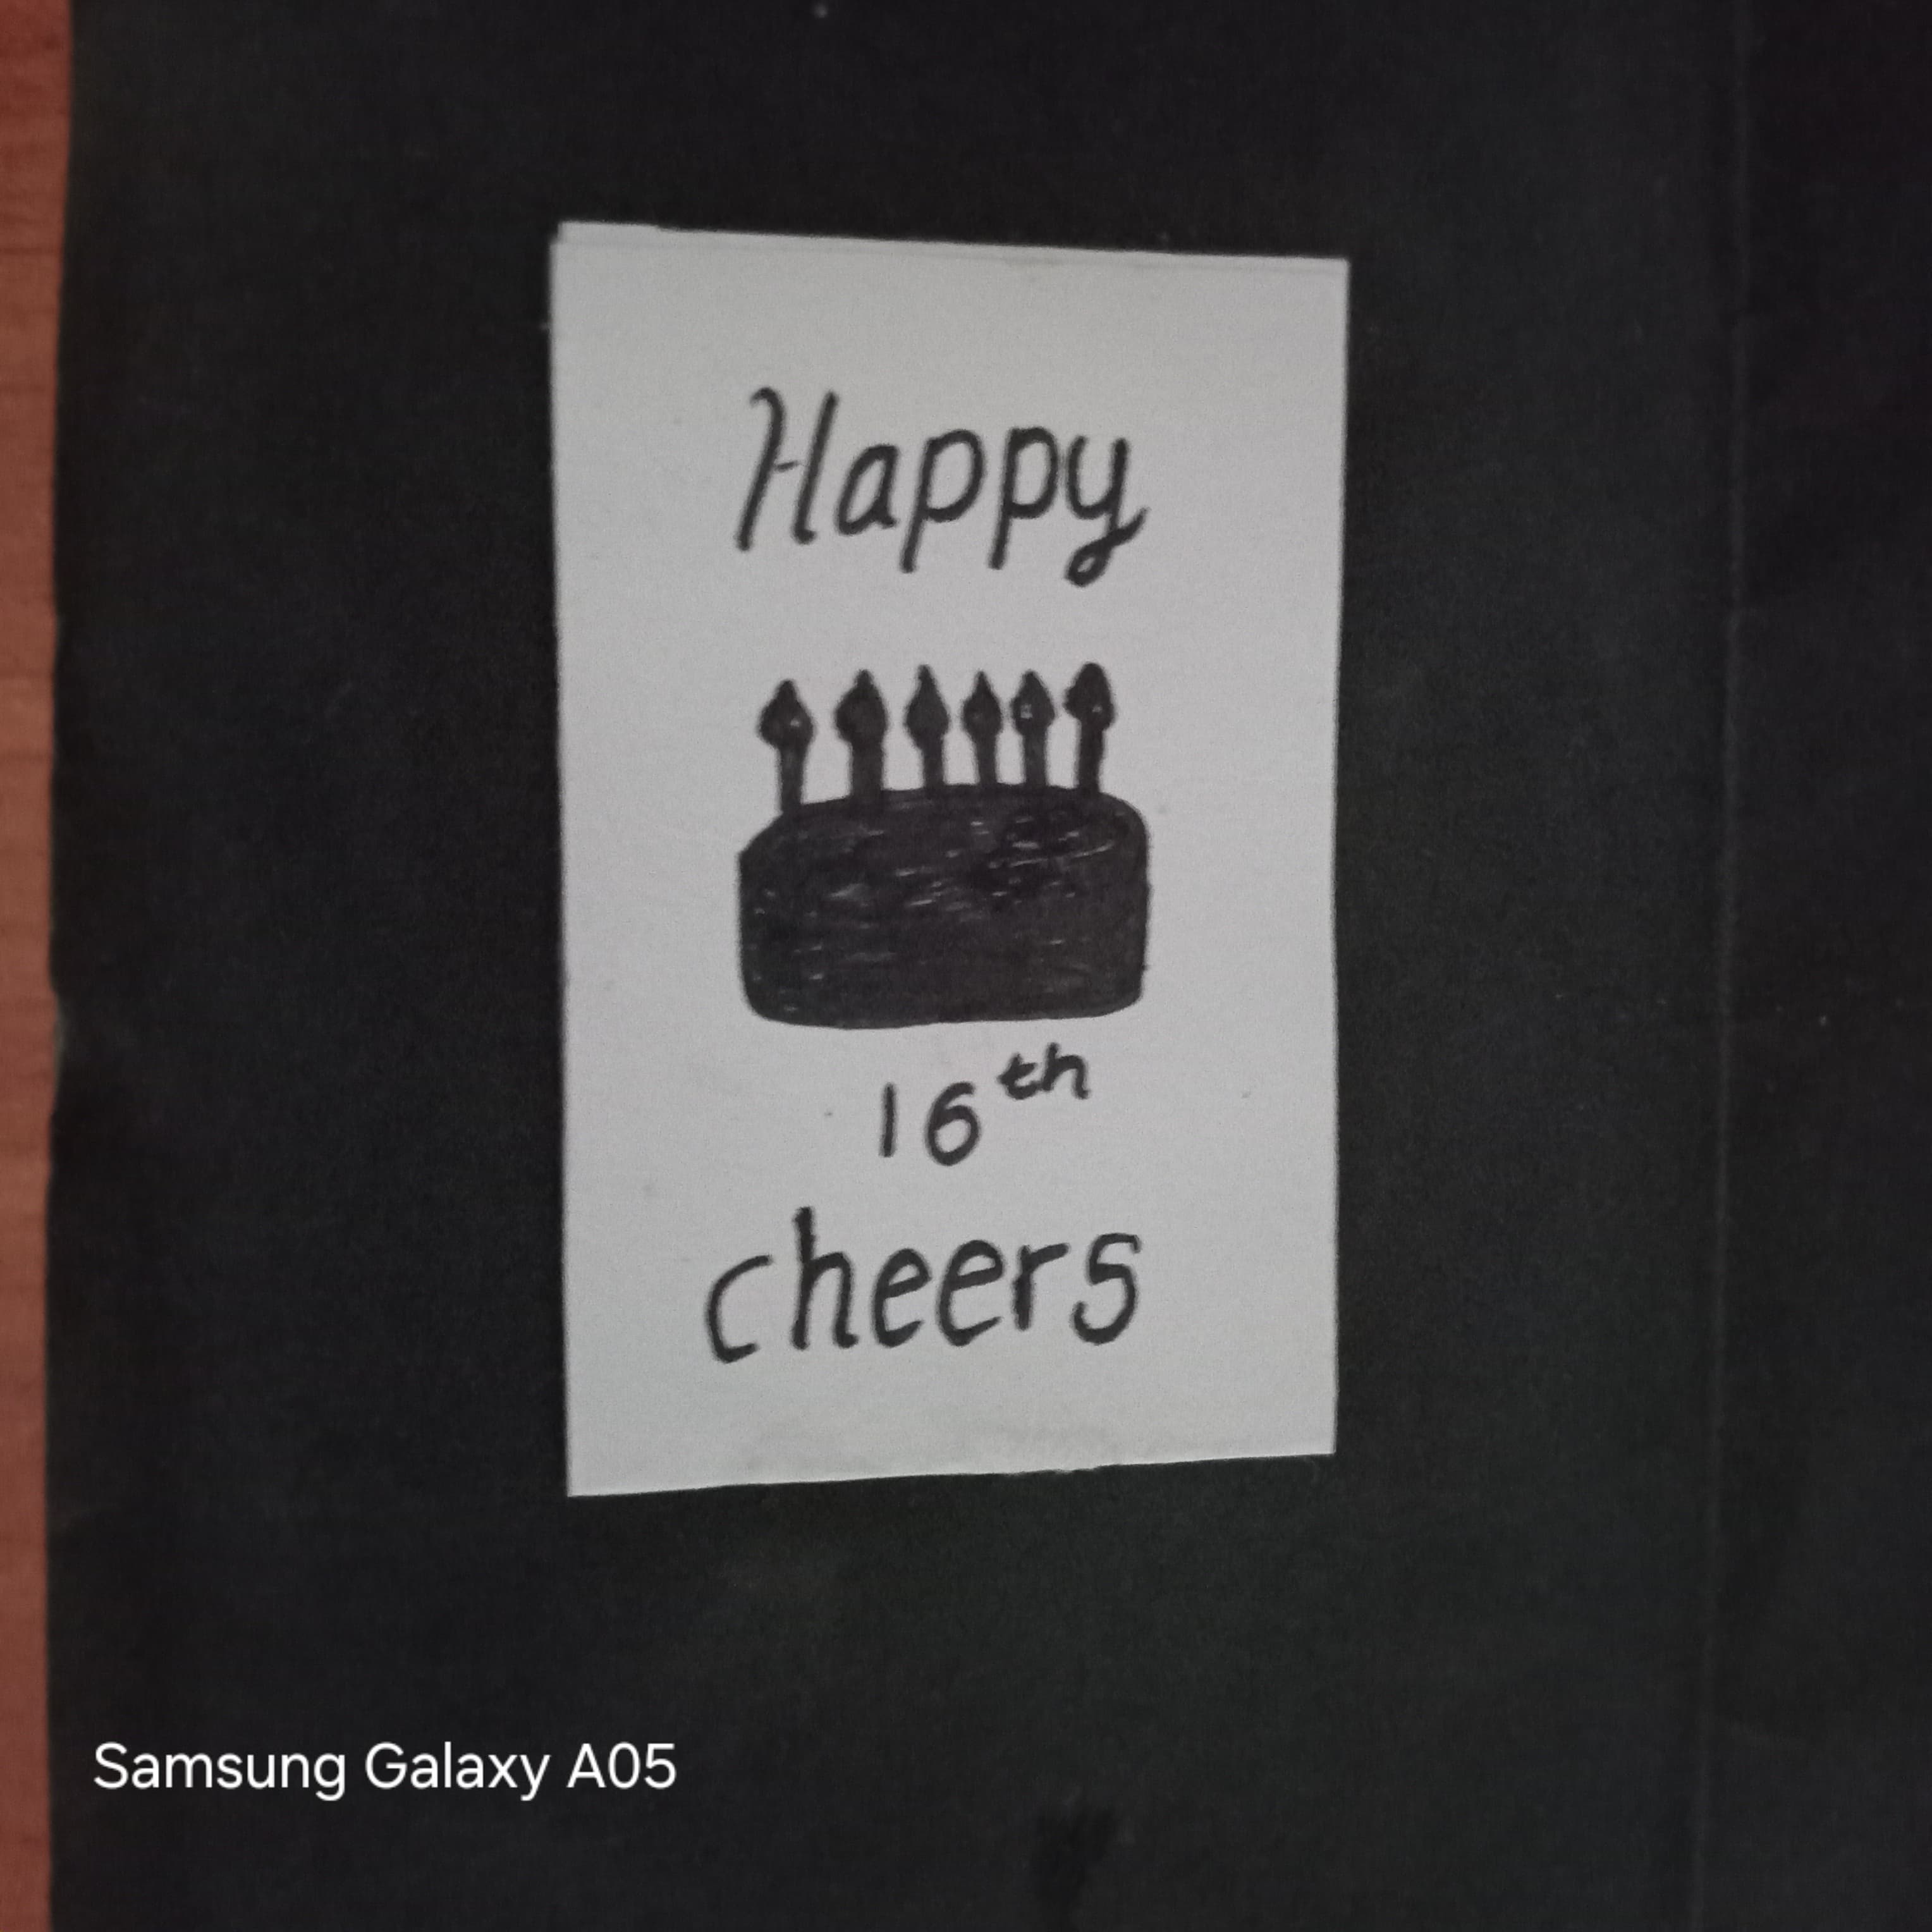 Happy
16th
cheers
Samsung Galaxy A05